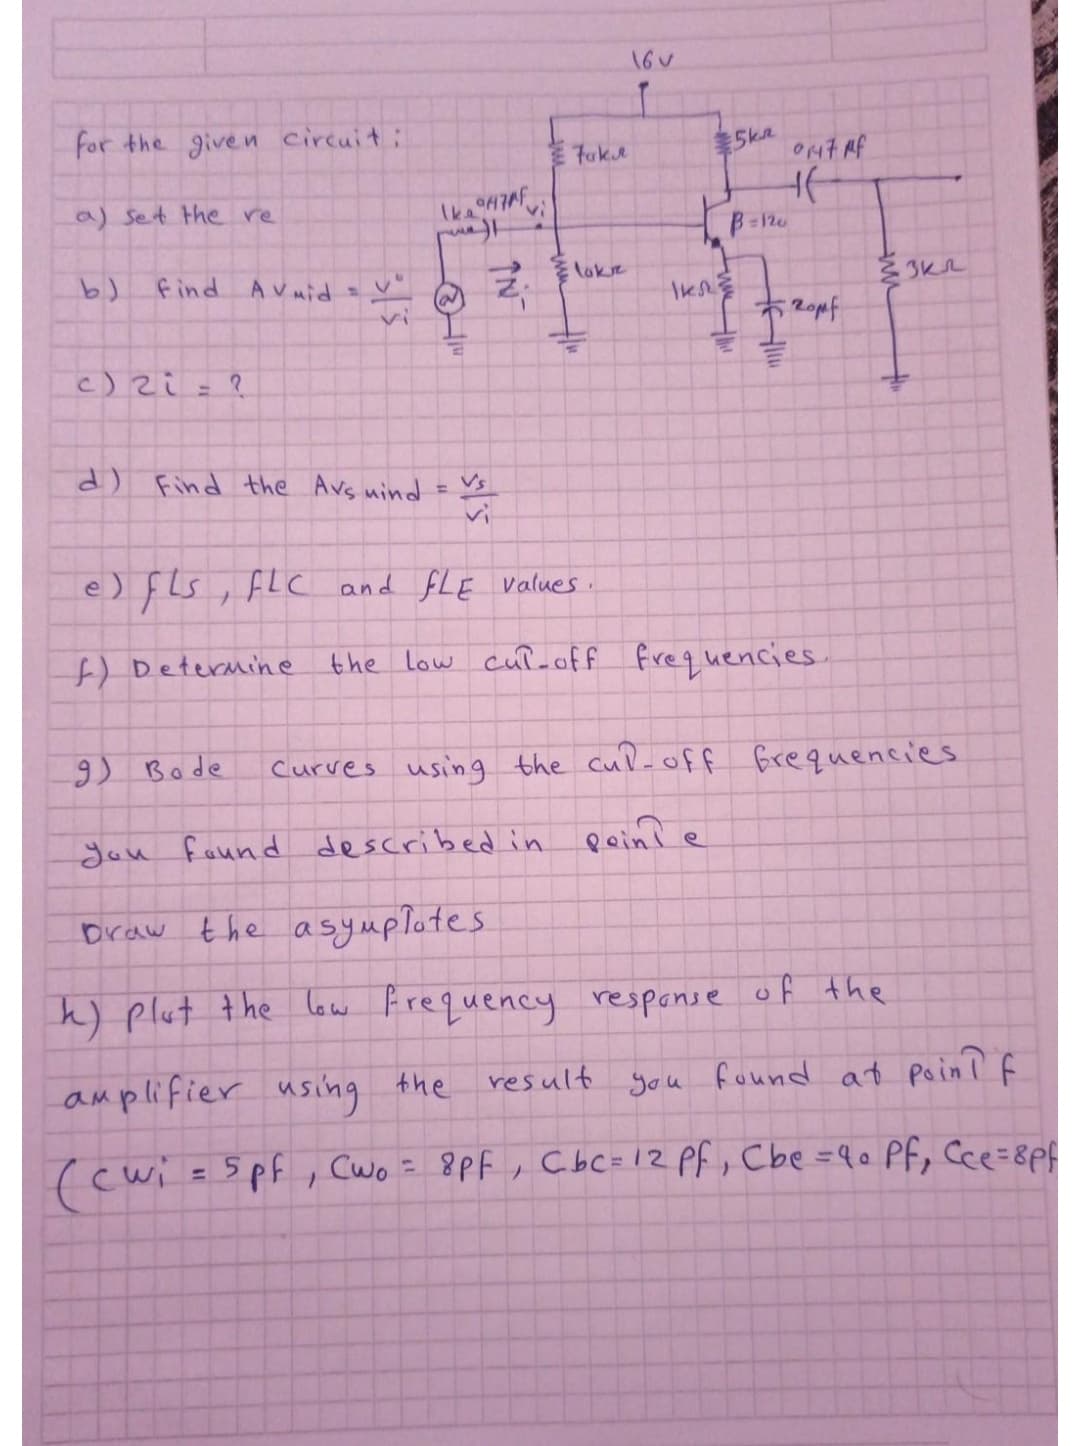 16V
for the given circuit:
70kΩ
5kΩ
0,47 μf
a) set the re
1kΩ
0,47μf
Vi
β=120
b) find AVmid = Vo/Vi
Zi
10kΩ
1kΩ
20μf
3kΩ
c) Zi = ?
d) Find the AVs mind = Vs/Vi
e) fLs, fLC and fLE values.
f) Determine the low cut-off frequencies.
g) Bode curves using the cut-off frequencies
you found described in point e
Draw the asymptotes
h) plot the low frequency response of the
amplifier using the result you found at point f
(Cwi = 5pf, Cwo = 8pf, Cbc=12 Pf, Cbe=90 Pf, Cce=8pf